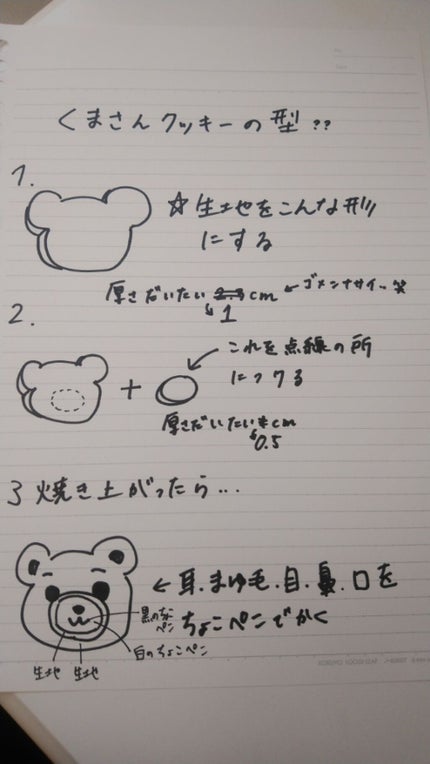 くまさんクッキーの型??
1.
☆生地をこんな形
にする
厚さだいたい 2~3 cm ←ゴメンナサイ..笑
↳1
2.
+
これを点線の所
につける
厚さだいたい cm
↳0.5
3 焼き上がったら...
← 耳.まゆ毛.目.鼻.口を
ちょこペンでかく
黒のちょこ
ペン
白のちょこペン
生地 生地